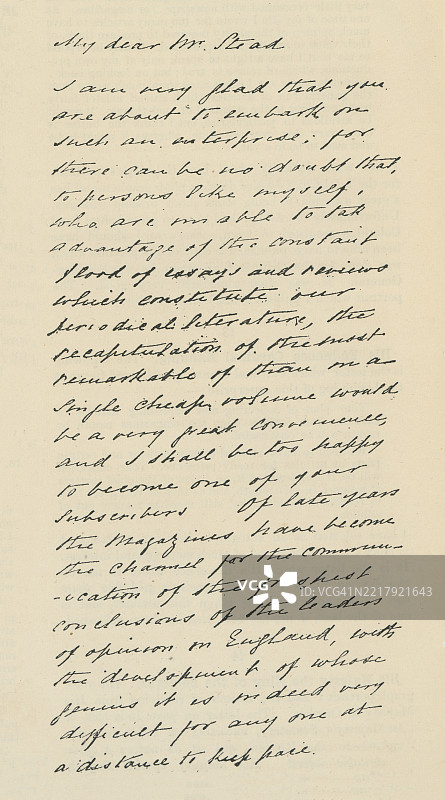 My dear Mr. Stead
I am very glad that you
are about to embark on
such an enterprise; for
there can be no doubt that,
to persons like myself,
who are unable to tak
advantage of the constant
flood of essays and reviews
which constitute our
periodical literature, the
recapitulation of the most
remarkable of them in a
single cheap volume would
be a very great convenience,
and I shall be too happy
to become one of your
subscribers Of late years
the Magazines have become
the channel for the commun-
-ication of the
conclusions of the leaders
of opinion in England, with
the development of whose
genius it is indeed very
difficult for any one at
a distance to keep pace.
VCG
VCG41N2217921643